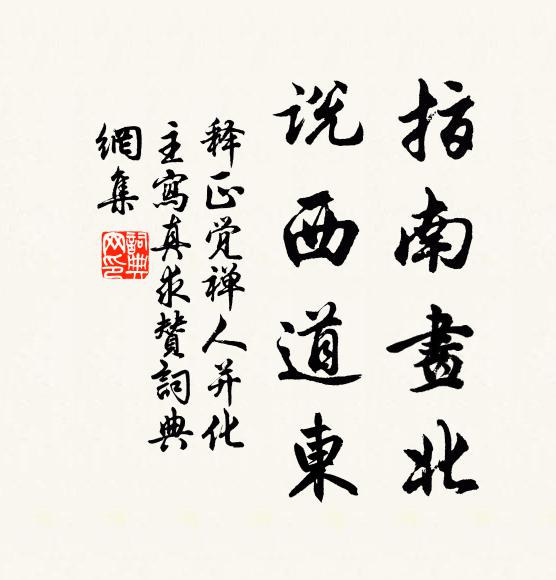 指南畫北
说西道東
释正觉禅人并化
主寫真求贊詞典
網集
詞典網印